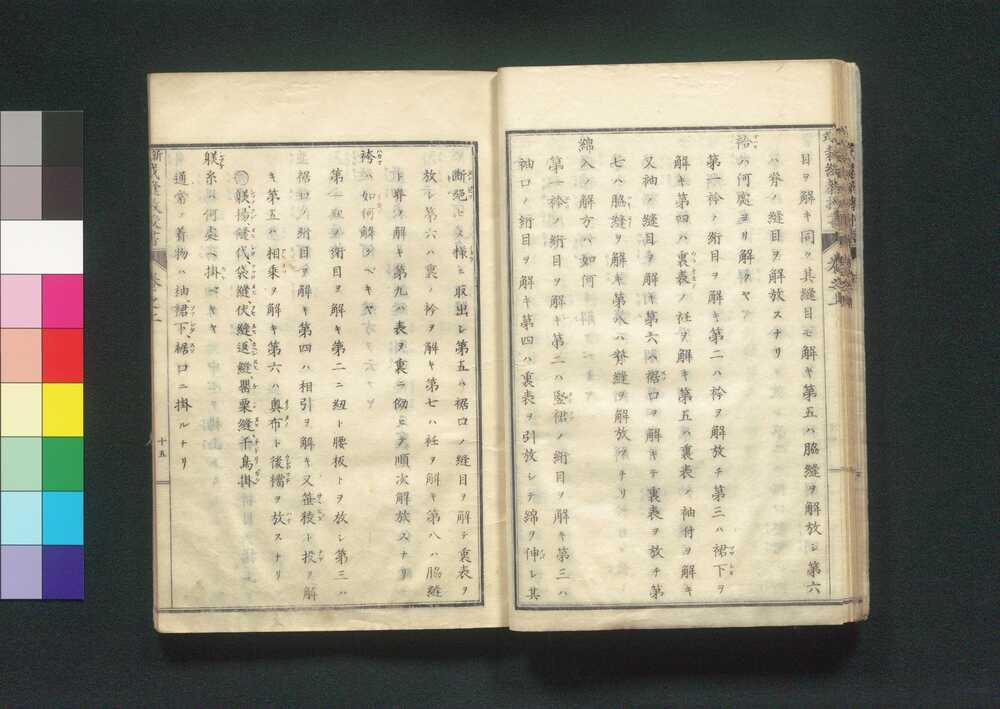 目ヲ解キ同ク其縫目モ解キ第五ハ脇縫ヲ解放シ第六
ハ脊ノ縫目ヲ解放スナリ
袷ハ何處ヨリ解クヤ
第一衿ノ絎目ヲ解キ第二ハ衿ヲ解放チ第三ハ裙下ヲ
解キ第四ハ裏表ノ衽ヲ解キ第五ハ裏表ノ袖付ヲ解キ
又袖ノ縫目ヲ解キ第六ハ裾口ヲ解キテ裏表ヲ放チ第
七ハ脇縫ヲ解キ第八ハ脊縫ヲ解放ツナリ
綿入ノ解方ハ如何
第一衿ノ絎目ヲ解キ第二ハ竪裙ノ絎目ヲ解キ第三ハ
袖口ノ絎目ヲ解キ第四ハ裏表ヲ引放シテ綿ヲ伸シ其
断絶セヌ様ニ取出シ第五ハ裾口ノ縫目ヲ解テ裏表ヲ
放チ第六ハ裏ノ衿ヲ解キ第七ハ衽ヲ解キ第八ハ脇縫
ト脊ヲ解キ第九ハ表ヲ裏ニ傚ヒテ順次解放スナリ
袴ハ如何解シベキヤ
第一紐ノ絎目ヲ解キ第二ニ紐ト腰板トヲ放シ第三ハ
裾口ノ絎目ヲ解キ第四ハ相引ヲ解キ又笹稜ト投ヲ解
キ第五ハ相乗ヲ解キ第六ハ奥布ト後襠ヲ放スナリ
躾揚縫代袋縫伏縫返縫罌粟縫千鳥掛
躾糸ハ何處ヘ掛ベキヤ
通常ノ着物ハ袖、裙下、裾口ニ掛ルナリ
十五